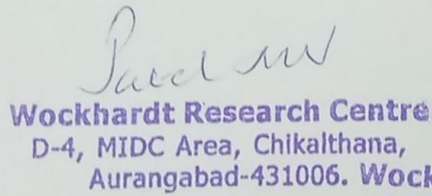 Wockhardt Research Centre
D-4, MIDC Area, Chikalthana,
Aurangabad-431006. Wock